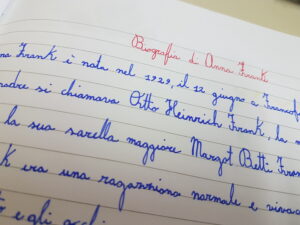 Biografia di Anna Frank
na Frank è nata nel 1929, il 12 giugno a Francof
adre si chiamava Otto Heinrich Frank, la m
la sua sorella maggiore Margot Betti Fran
K era una ragazzina normale e vivac
e gli